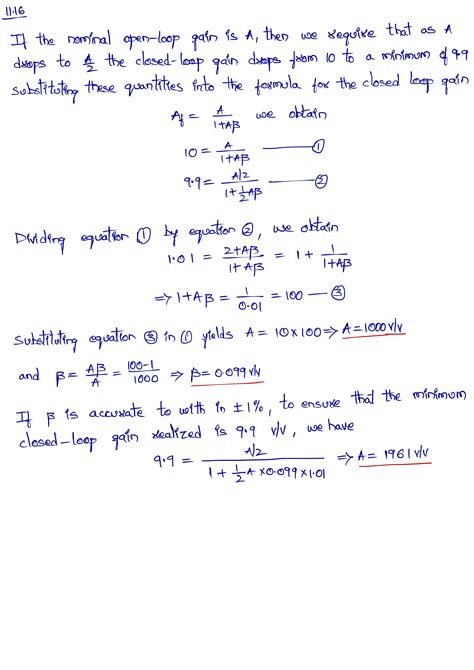 11.16
If the nominal open-loop gain is A, then we require that as A
drops to A/2 the closed-loop gain drops from 10 to a minimum of 9.9
substituting these quantities into the formula for the closed loop gain
Af = A/(1+Aβ) we obtain
10 = A/(1+Aβ) —— ①
9.9 = (A/2)/(1+½Aβ) —— ②
Dividing equation ① by equation ②, we obtain
1.01 = (2+Aβ)/(1+Aβ) = 1 + 1/(1+Aβ)
⇒ 1+Aβ = 1/0.01 = 100 — ③
Substituting equation ③ in ① yields A = 10×100 ⇒ A = 1000 v/v
and β = Aβ/A = (100-1)/1000 ⇒ β = 0.099 v/v
If β is accurate to with in ±1%, to ensure that the minimum
closed-loop gain realized is 9.9 v/v, we have
9.9 = (A/2)/(1 + ½A×0.099×1.01) ⇒ A = 1961 v/v